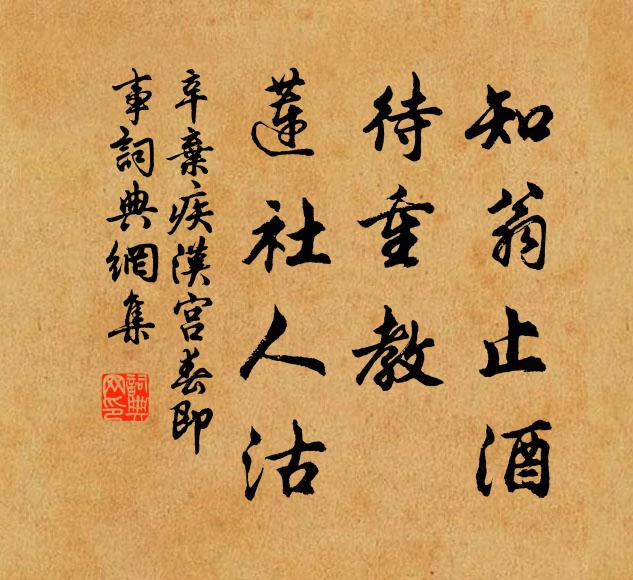 知翁止酒
待重教
蓮社人沽
辛棄疾漢宮春即
事詞典網集
詞典
网印